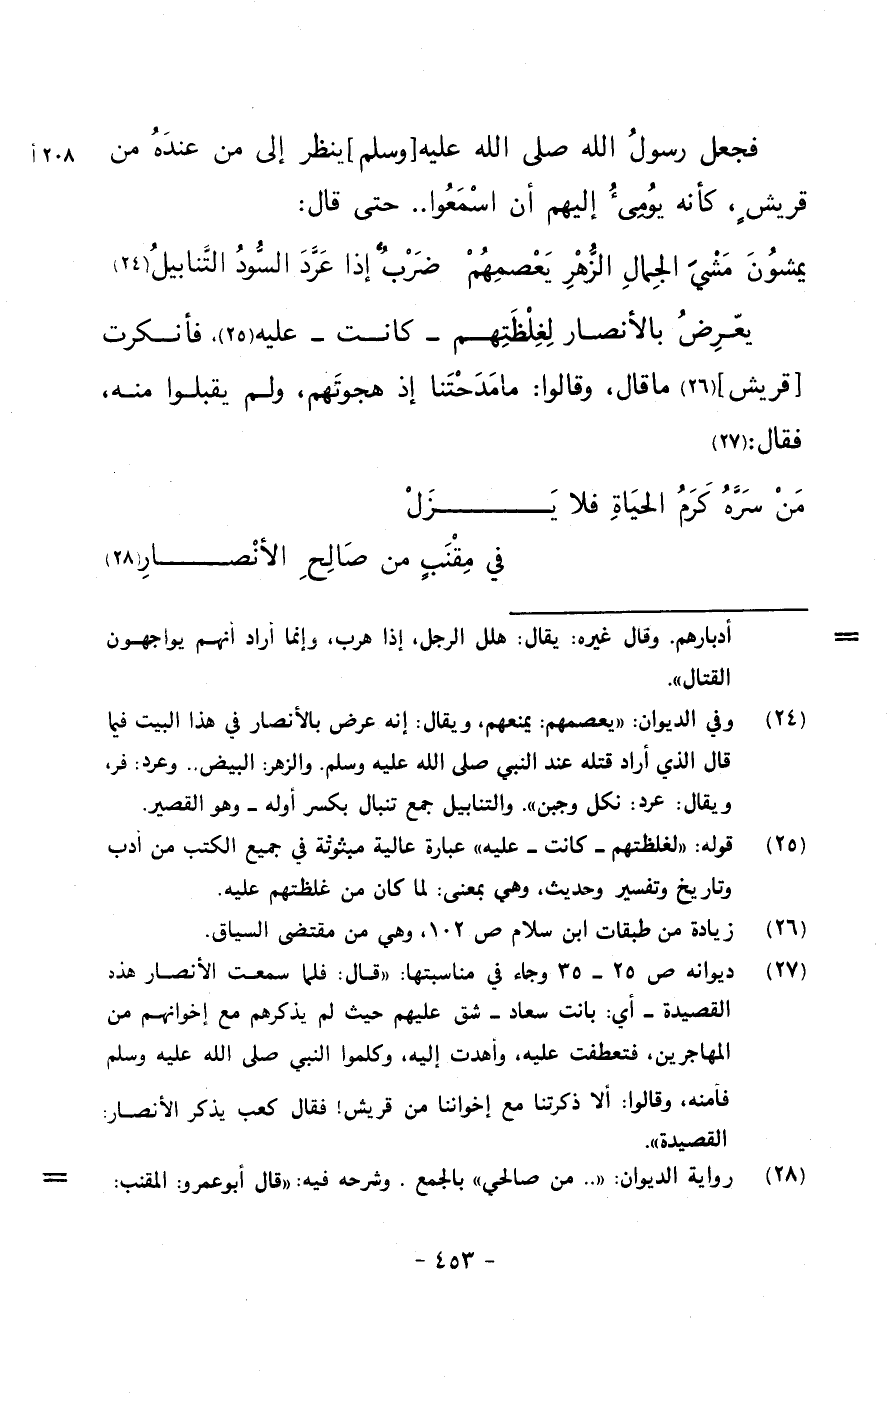 فجعل رسولُ الله صلى الله عليه[وسلم]ينظر إلى من عندَهُ من ٢٠٨ أ
قريشٍ، كأنه يُومِىءُ إليهم أن اسْمَعُوا.. حتى قال:
يمشوُنَ مَشْيَ الجِمالِ الزُّهْرِ يَعْصمِهُمْ ضَرْبٌ إذا عَرَّدَ السُّودُ التَّنابيلُ(٢٤)
يعّرِضُ بالأنصار لِغِلْظَتِهم ـ كانت ـ عليه(٢٥). فأنكرت
[قريش](٢٦) ماقال، وقالوا: مامَدَحْتَنا إذ هجوتَهم، ولم يقبلوا منه،
فقال:(٢٧)
مَنْ سرَّهُ كَرَمُ الحيَاةِ فلا يَزَلْ
في مِقْنَبٍ من صَالِحِ الأنْصارِ(٢٨)
= أدبارهم. وقال غيره: يقال: هلل الرجل، إذا هرب، وإنما أراد أنهم يواجهون
القتال».
(٢٤) وفي الديوان: «يعصمهم: يمنعهم، ويقال: إنه عرض بالأنصار في هذا البيت فيما
قال الذي أراد قتله عند النبي صلى الله عليه وسلم. والزهر: البيض.. وعرد: فر،
ويقال: عرد: نكل وجبن». والتنابيل جمع تنبال بكسر أوله ـ وهو القصير.
(٢٥) قوله: «لغلظتهم ـ كانت ـ عليه» عبارة عالية مبثوثة في جميع الكتب من أدب
وتاريخ وتفسير وحديث، وهي بمعنى: لما كان من غلظتهم عليه.
(٢٦) زيادة من طبقات ابن سلام ص ١٠٢، وهي من مقتضى السياق.
(٢٧) ديوانه ص ٢٥ ـ ٣٥ وجاء في مناسبتها: «قال: فلما سمعت الأنصار هذه
القصيدة ـ أي: بانت سعاد ـ شق عليهم حيث لم يذكرهم مع إخوانهم من
المهاجرين، فتعطفت عليه، وأهدت إليه، وكلموا النبي صلى الله عليه وسلم
فأمنه، وقالوا: ألا ذكرتنا مع إخواننا من قريش! فقال كعب يذكر الأنصار:
القصيدة».
(٢٨) رواية الديوان: «.. من صالحي» بالجمع . وشرحه فيه: «قال أبوعمرو: المقنب: =
- ٤٥٣ -